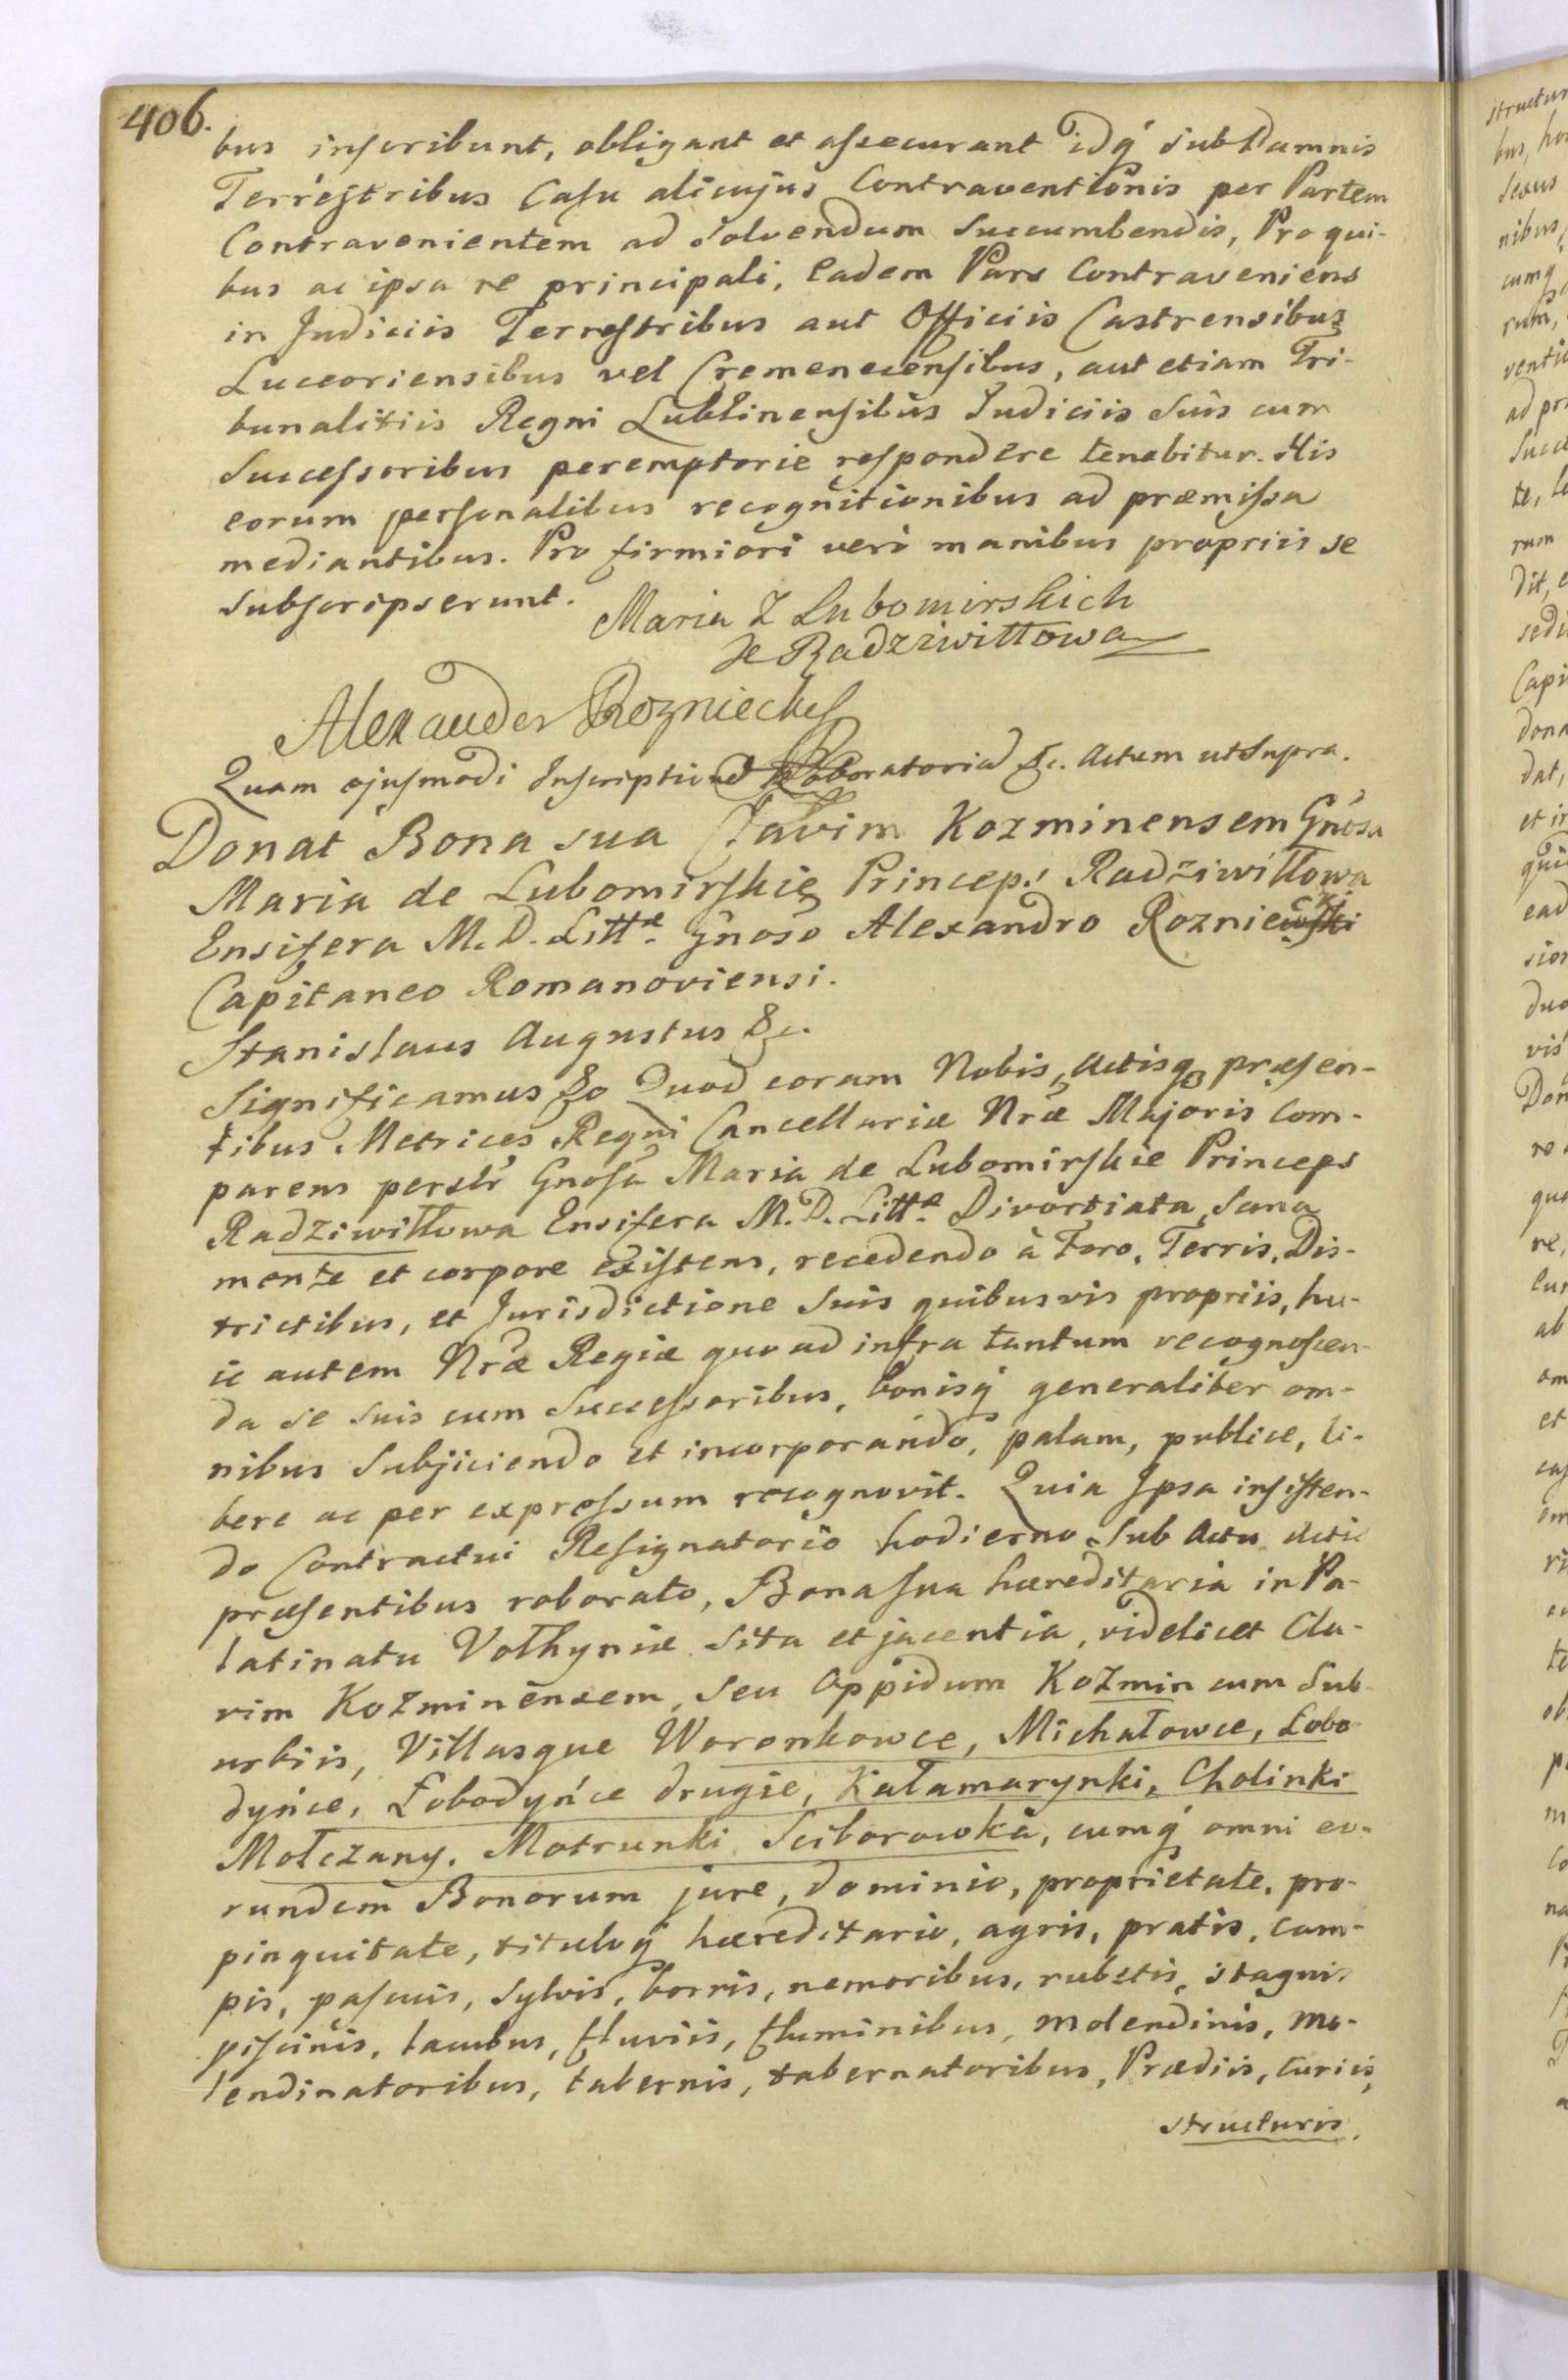 406.
bus inscribunt, obligant et assecurant idq́ sub Damnis
Terrestribus Casu alicujus Contraventionis per Partem
Contravenientem ad solvendum succumbendis, Pro qui-
bus ac ipsa re principali, Eadem Pars Contraveniens
in Judiciis Terrestribus aut Officiis Castrensibus
Luceoriensibus vel Cremenecensibus, aut etiam Tri-
bunalitiis Regni Lublinensibus Judiciis suis cum
Successoribus peremptorie respondere tenebitur. His
eorum personalibus recognitionibus ad præmissa
mediantibus. Pro firmiori verò manibus propriis se
subscripserunt.
Maria Z Lubomirskich
Radziwiłłowa
Alexander Rozniecki
Quam ejusmodi Inscriptionem Roboratoriam &c. Actum ut supra.
Donat Bona sua Clavim Kozminensem Gnosa
Maria de Lubomirskie Princeps Radziwiłłowa
Ensifera M. D. Litt. Gnoso Alexandro Rozniecki
Capitaneo Romanoviensi.
Stanislaus Augustus &c.
Significamus &c Quod coram Nobis, Actisq præsen-
tibus Metrices Regni Cancellariæ Nræ Majoris Com-
parens perslr Gnosa Maria de Lubomirskie Princeps
Radziwiłłowa Ensifera M. D. Litt. Divortiata, sana
mente et corpore existens, recedendo à Foro, Terris, Dis-
trictibus, et Jurisdictione suis quibusvis propriis, hu-
ic autem Nræ Regiæ quo ad infra tantum recognoscen-
da se suis cum Successoribus, bonisq́ generaliter om-
nibus subjiciendo et incorporando, palam, publice, li-
bere ac per expressum recognovit. Quia Ipsa insisten-
do Contractui Resignatorio hodierno sub Actu Actis
præsentibus roborato, Bona sua hæreditaria in Pa-
latinatu Volhyniæ sita et jacentia, videlicet Cla-
vim Kozminensem, seu Oppidum Kozmin cum sub-
urbiis, Villasque Woronkowce, Michałowce, Łobo-
dyńce, Łobodyńce drugie, Kałamarynki, Cholinki
Mołczany, Motrunki Sciborowka, cumq́ omni eo-
rundem Bonorum jure, dominio, proprietate, pro-
pinquitate, tituloq́ hæreditario, agris, pratis, cam-
pis, pascuis, sylvis, borris, nemoribus, rubetis, stagnis
piscinis, lacubus, fluviis, fluminibus, molendinis, mo-
lendinatoribus, tabernis, tabernatoribus, Prædiis, curiis,
structuris,